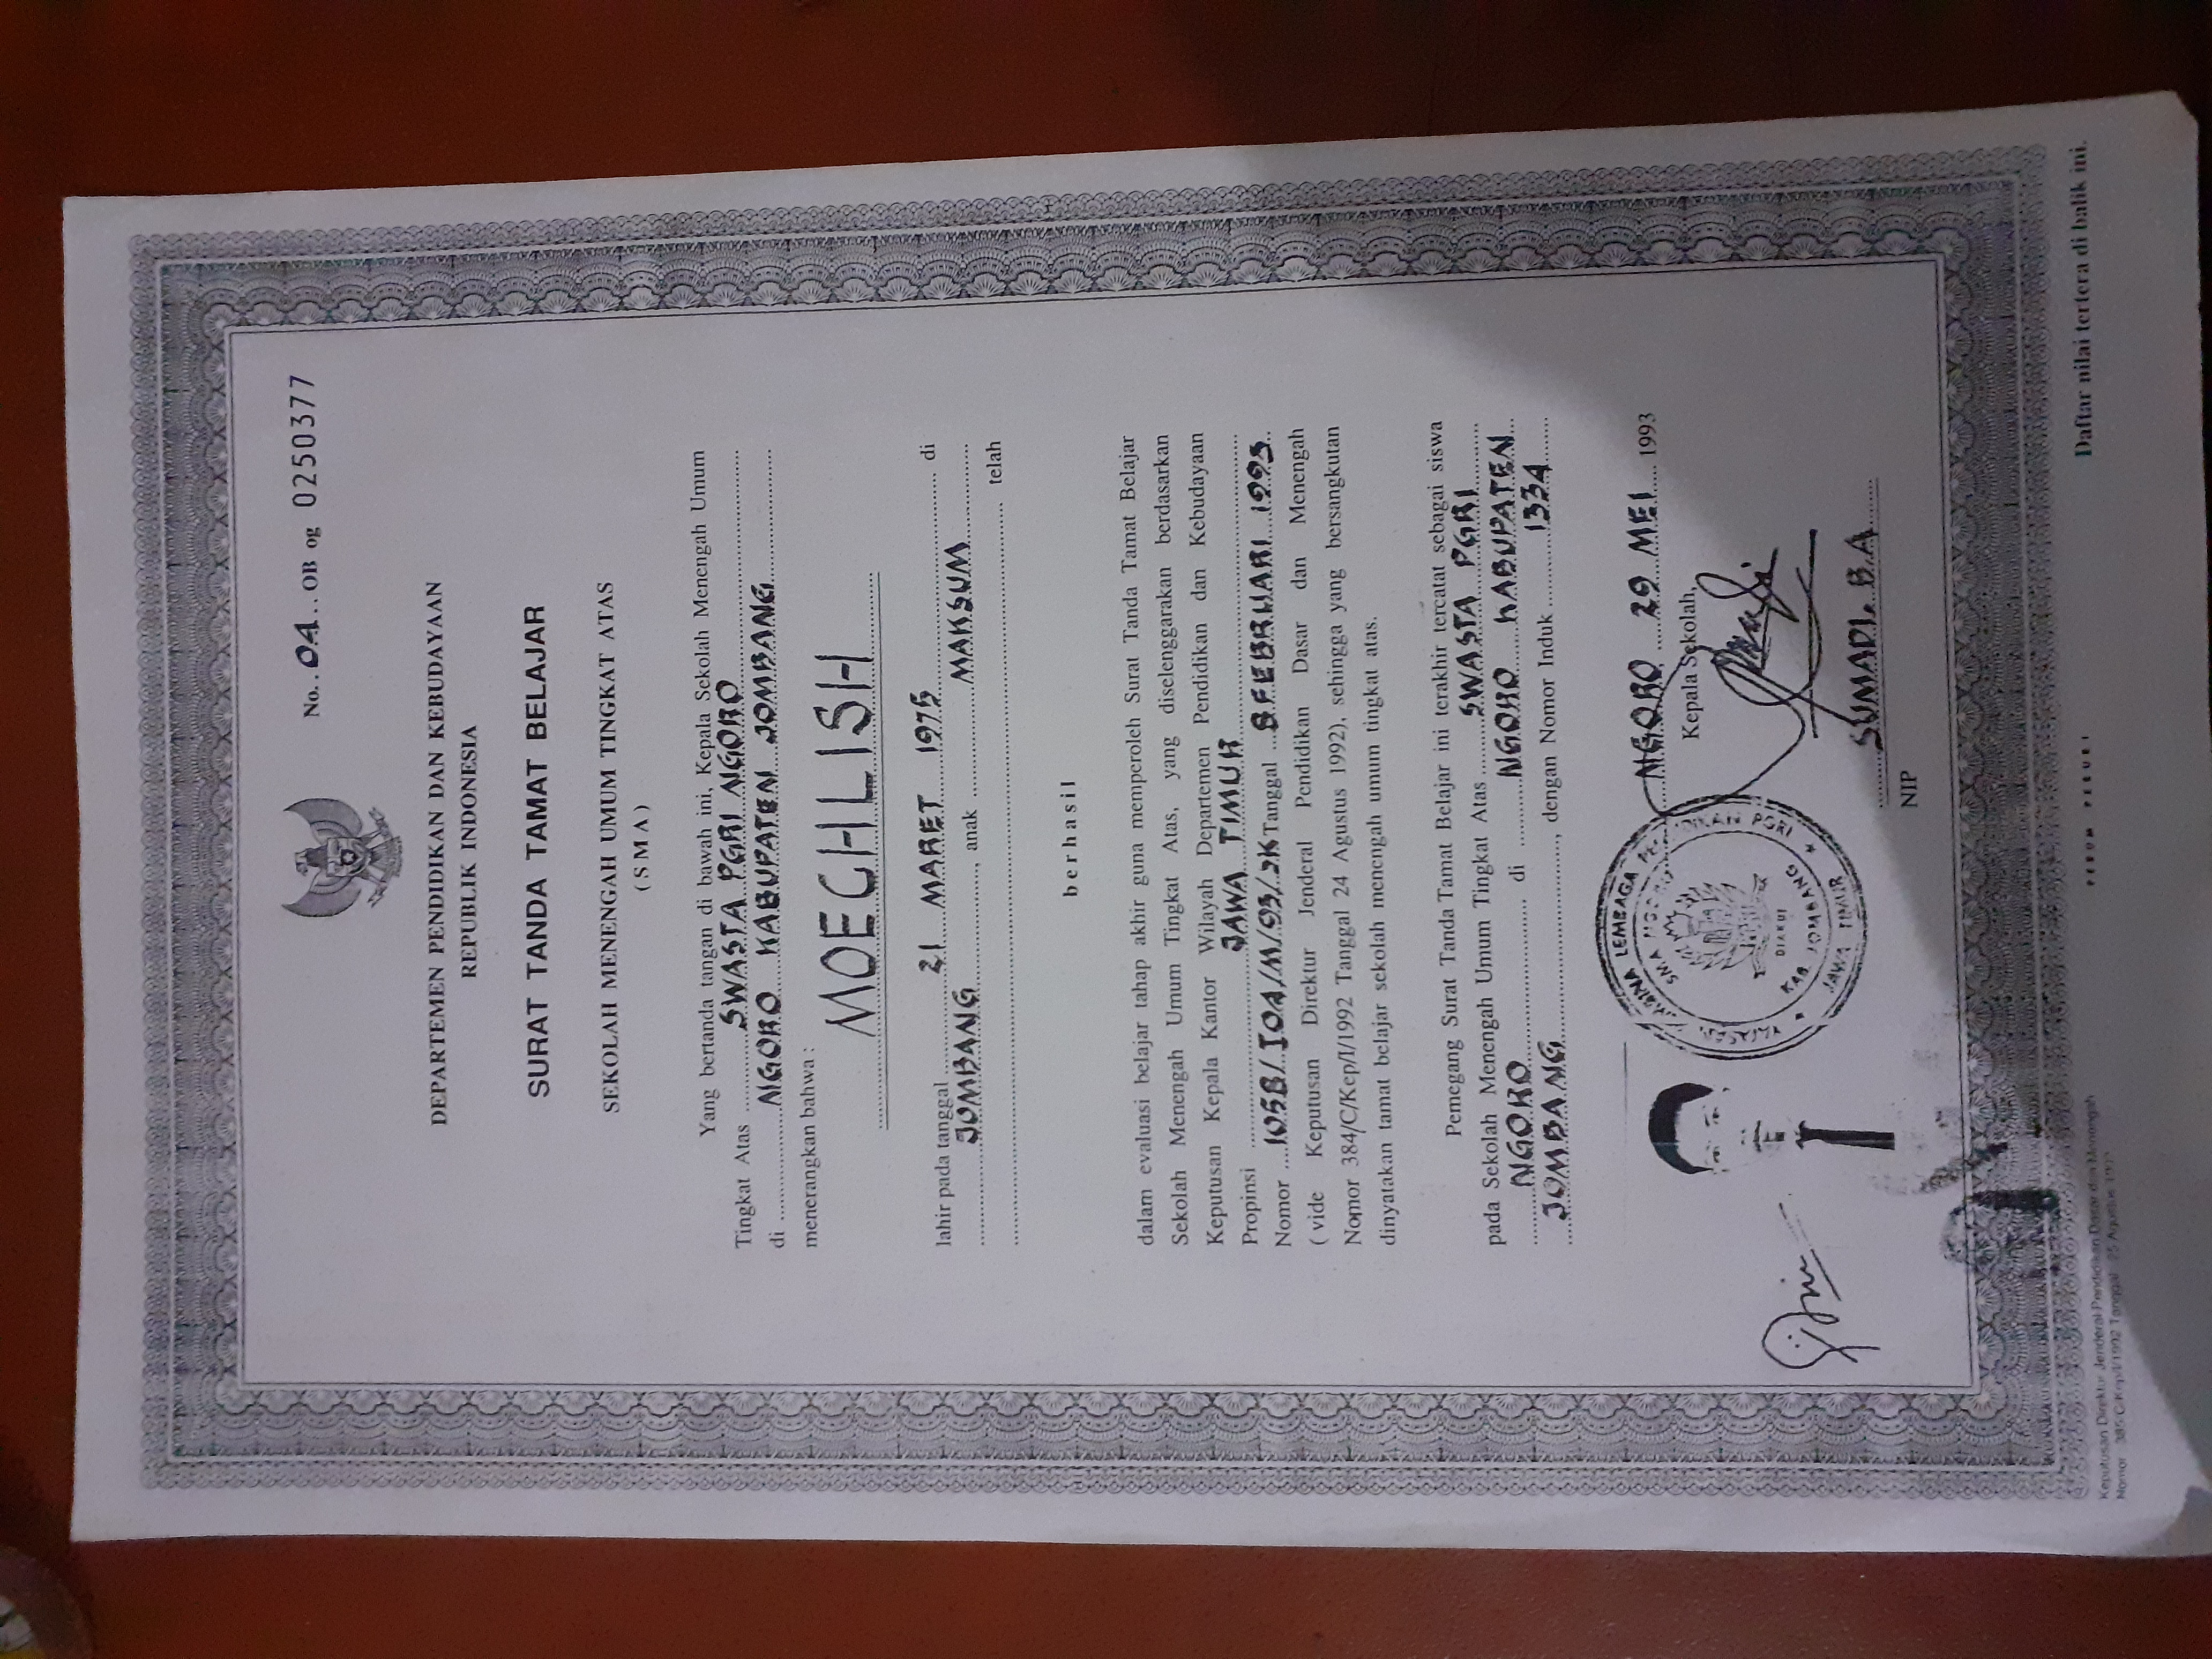 No. . 04 . . OB og 0250377
DEPARTEMEN PENDIDIKAN DAN KEBUDAYAAN
REPUBLIK INDONESIA
SURAT TANDA TAMAT BELAJAR
SEKOLAH MENENGAH UMUM TINGKAT ATAS
( S M A )
Yang bertanda tangan di bawah ini, Kepala Sekolah Menengah Umum
Tingkat Atas SWASTA PGRI NGORO
di NGORO KABUPATEN JOMBANG
menerangkan bahwa :
MOECHLISH
lahir pada tanggal 21 MARET 1975 di
JOMBANG, anak MAKSUM
telah
berhasil
dalam evaluasi belajar tahap akhir guna memperoleh Surat Tanda Tamat Belajar
Sekolah Menengah Umum Tingkat Atas, yang diselenggarakan berdasarkan
Keputusan Kepala Kantor Wilayah Departemen Pendidikan dan Kebudayaan
Propinsi JAWA TIMUR
Nomor Tanggal 8 FEBRUARI 1993
( vide Keputusan Direktur Jenderal Pendidikan Dasar dan Menengah
Nomor 384/C/Kep/I/1992 Tanggal 24 Agustus 1992), sehingga yang bersangkutan
dinyatakan tamat belajar sekolah menengah umum tingkat atas.
Pemegang Surat Tanda Tamat Belajar ini terakhir tercatat sebagai siswa
pada Sekolah Menengah Umum Tingkat Atas SWASTA PGRI
NGORO di NGORO KABUPATEN
JOMBANG, dengan Nomor Induk 1334
NGORO 29 MEI 1993
Kepala Sekolah,
YAYASAN PEMBINA LEMBAGA PENDIDIKAN PGRI
SMA NGORO
DIAKUI
KAB. JOMBANG
JAWA TIMUR
SUMADI. B.A
NIP
Keputusan Direktur Jenderal Pendidikan Dasar dan Menengah
Nomor : 385/C/Kep/I/1992 Tanggal : 25 Agustus 1992
PERUM PERURI
Daftar nilai tertera di balik ini.